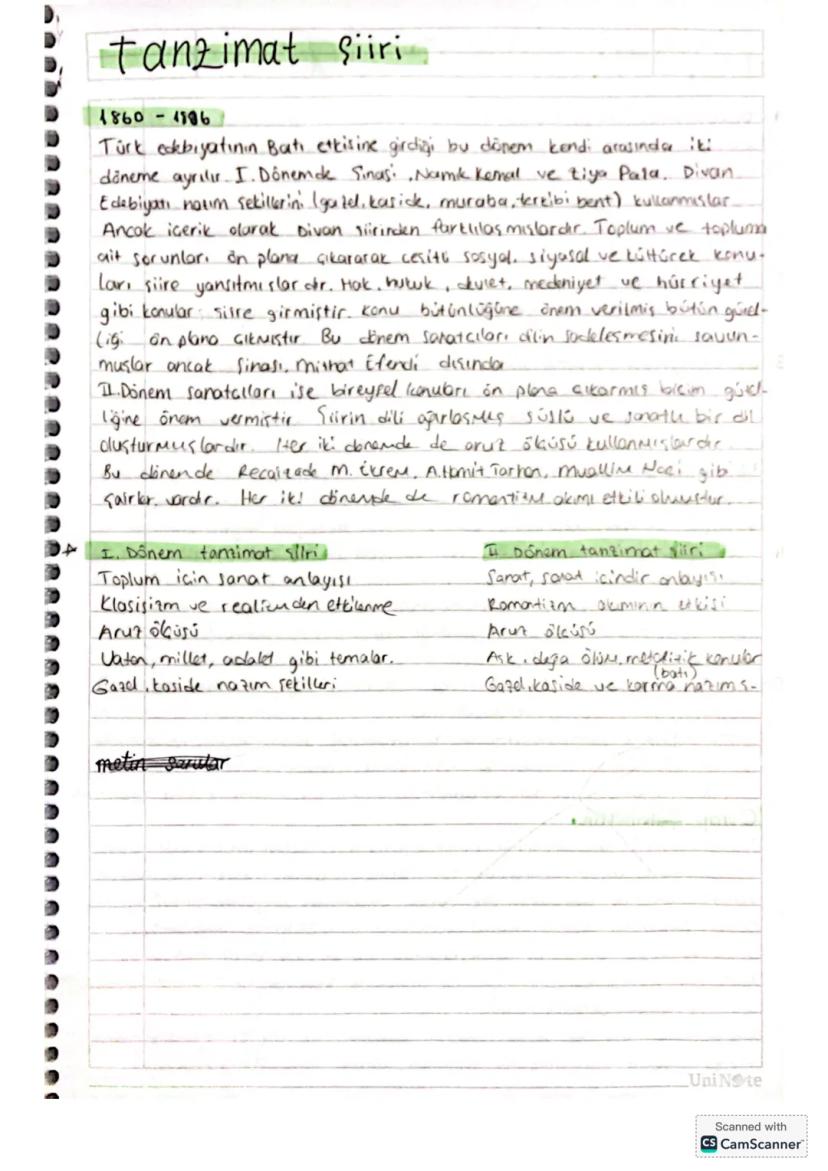 tanzimat şiiri
1860 - 1896
Türk edebiyatının Batı etkisine girdiği bu dönem kendi arasında iki
döneme ayrılır. I. Dönemde Şinasi, Namık Kemal ve Ziya Paşa. Divan
Edebiyatı nazım şekillerini (gazel, kaside, muraba, terkibi bent) kullanmışlar
Ancak içerik olarak Divan şiirinden farklılaşmışlardır. Toplum ve topluma
ait sorunları ön plana çıkararak çeşitli sosyal, siyasal ve kültürek konu-
ları şiire yansıtmışlardır. Hak, hukuk, devlet, medeniyet ve hürriyet
gibi konular şiire girmiştir. Konu bütünlüğüne önem verilmiş bütün güzel-
liği ön plana çıkmıştır Bu dönem sanatçıları dilin sadeleşmesini savun-
muşlar ancak Şinasi, Mithat Efendi dışında
II. Dönem sanatçıları ise bireysel konuları ön plana çıkarmış biçim güzel-
liğine önem vermiştir. Şiirin dili ağırlaşmış süslü ve sanatlı bir dil
oluşturmuşlardır. Her iki dönemde de aruz ölçüsü kullanmışlardır.
Bu dönende Recaizade M. Ekrem, A.Hamit Tarhan, Muallim Naci gibi
şairler vardır. Her iki dönemde de romantizm akımı etkili olmuştur.
I. Dönem tanzimat şiiri II. Dönem tanzimat şiiri
Toplum için sanat anlayışı Sanat, sanat içindir anlayışı
Klasisizm ve realizmden etkilenme Romantizm akımının etkisi
Aruz ölçüsü Aruz ölçüsü
Vatan, millet, adalet gibi temalar. Aşk, doğa ölüm, metafizik konular
(batı)
Gazel, kaside nazım şekilleri Gazel, kaside ve karma nazım ş-
metin
UniNote
Scanned with
CS CamScanner